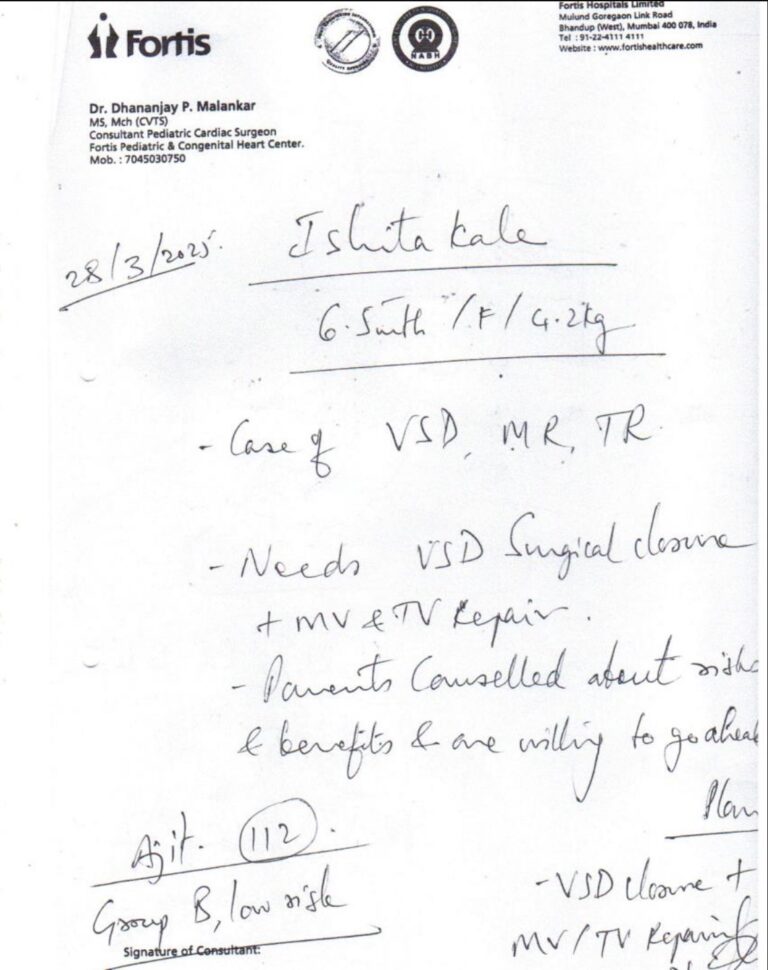 Fortis
Fortis Hospitals Limited
Mulund Goregaon Link Road
Bhandup (West), Mumbai 400 078, India
Tel : 91-22-4111 4111
Website : www.fortishealthcare.com
NABH
Dr. Dhananjay P. Malankar
MS, Mch (CVTS)
Consultant Pediatric Cardiac Surgeon
Fortis Pediatric & Congenital Heart Center.
Mob. : 7045030750
28/3/2025.
Ishita Kale
6.5mth /F/ 4.2kg
- Case of VSD, MR, TR.
- Needs VSD Surgical closure
+ MV & TV Repair.
- Parents Counselled about risks
& benefits & are willing to go ahead
Plan
- VSD closure +
MV/TV Repair
Ajit. 112.
Group B, low risk
Signature of Consultant: